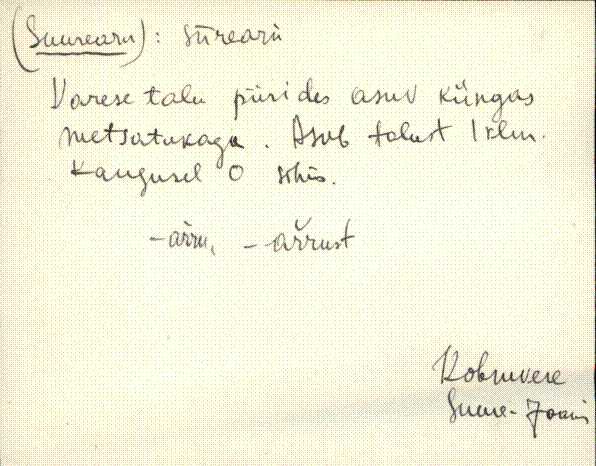 (Suurearu): sūrearū
Varese talu piirides asuv küngas
metsatukaga. Asub talust 1 klm.
kaugusel O sihis.
-aŕru, -aŕrust
Kobruvere
Suure-Jaani